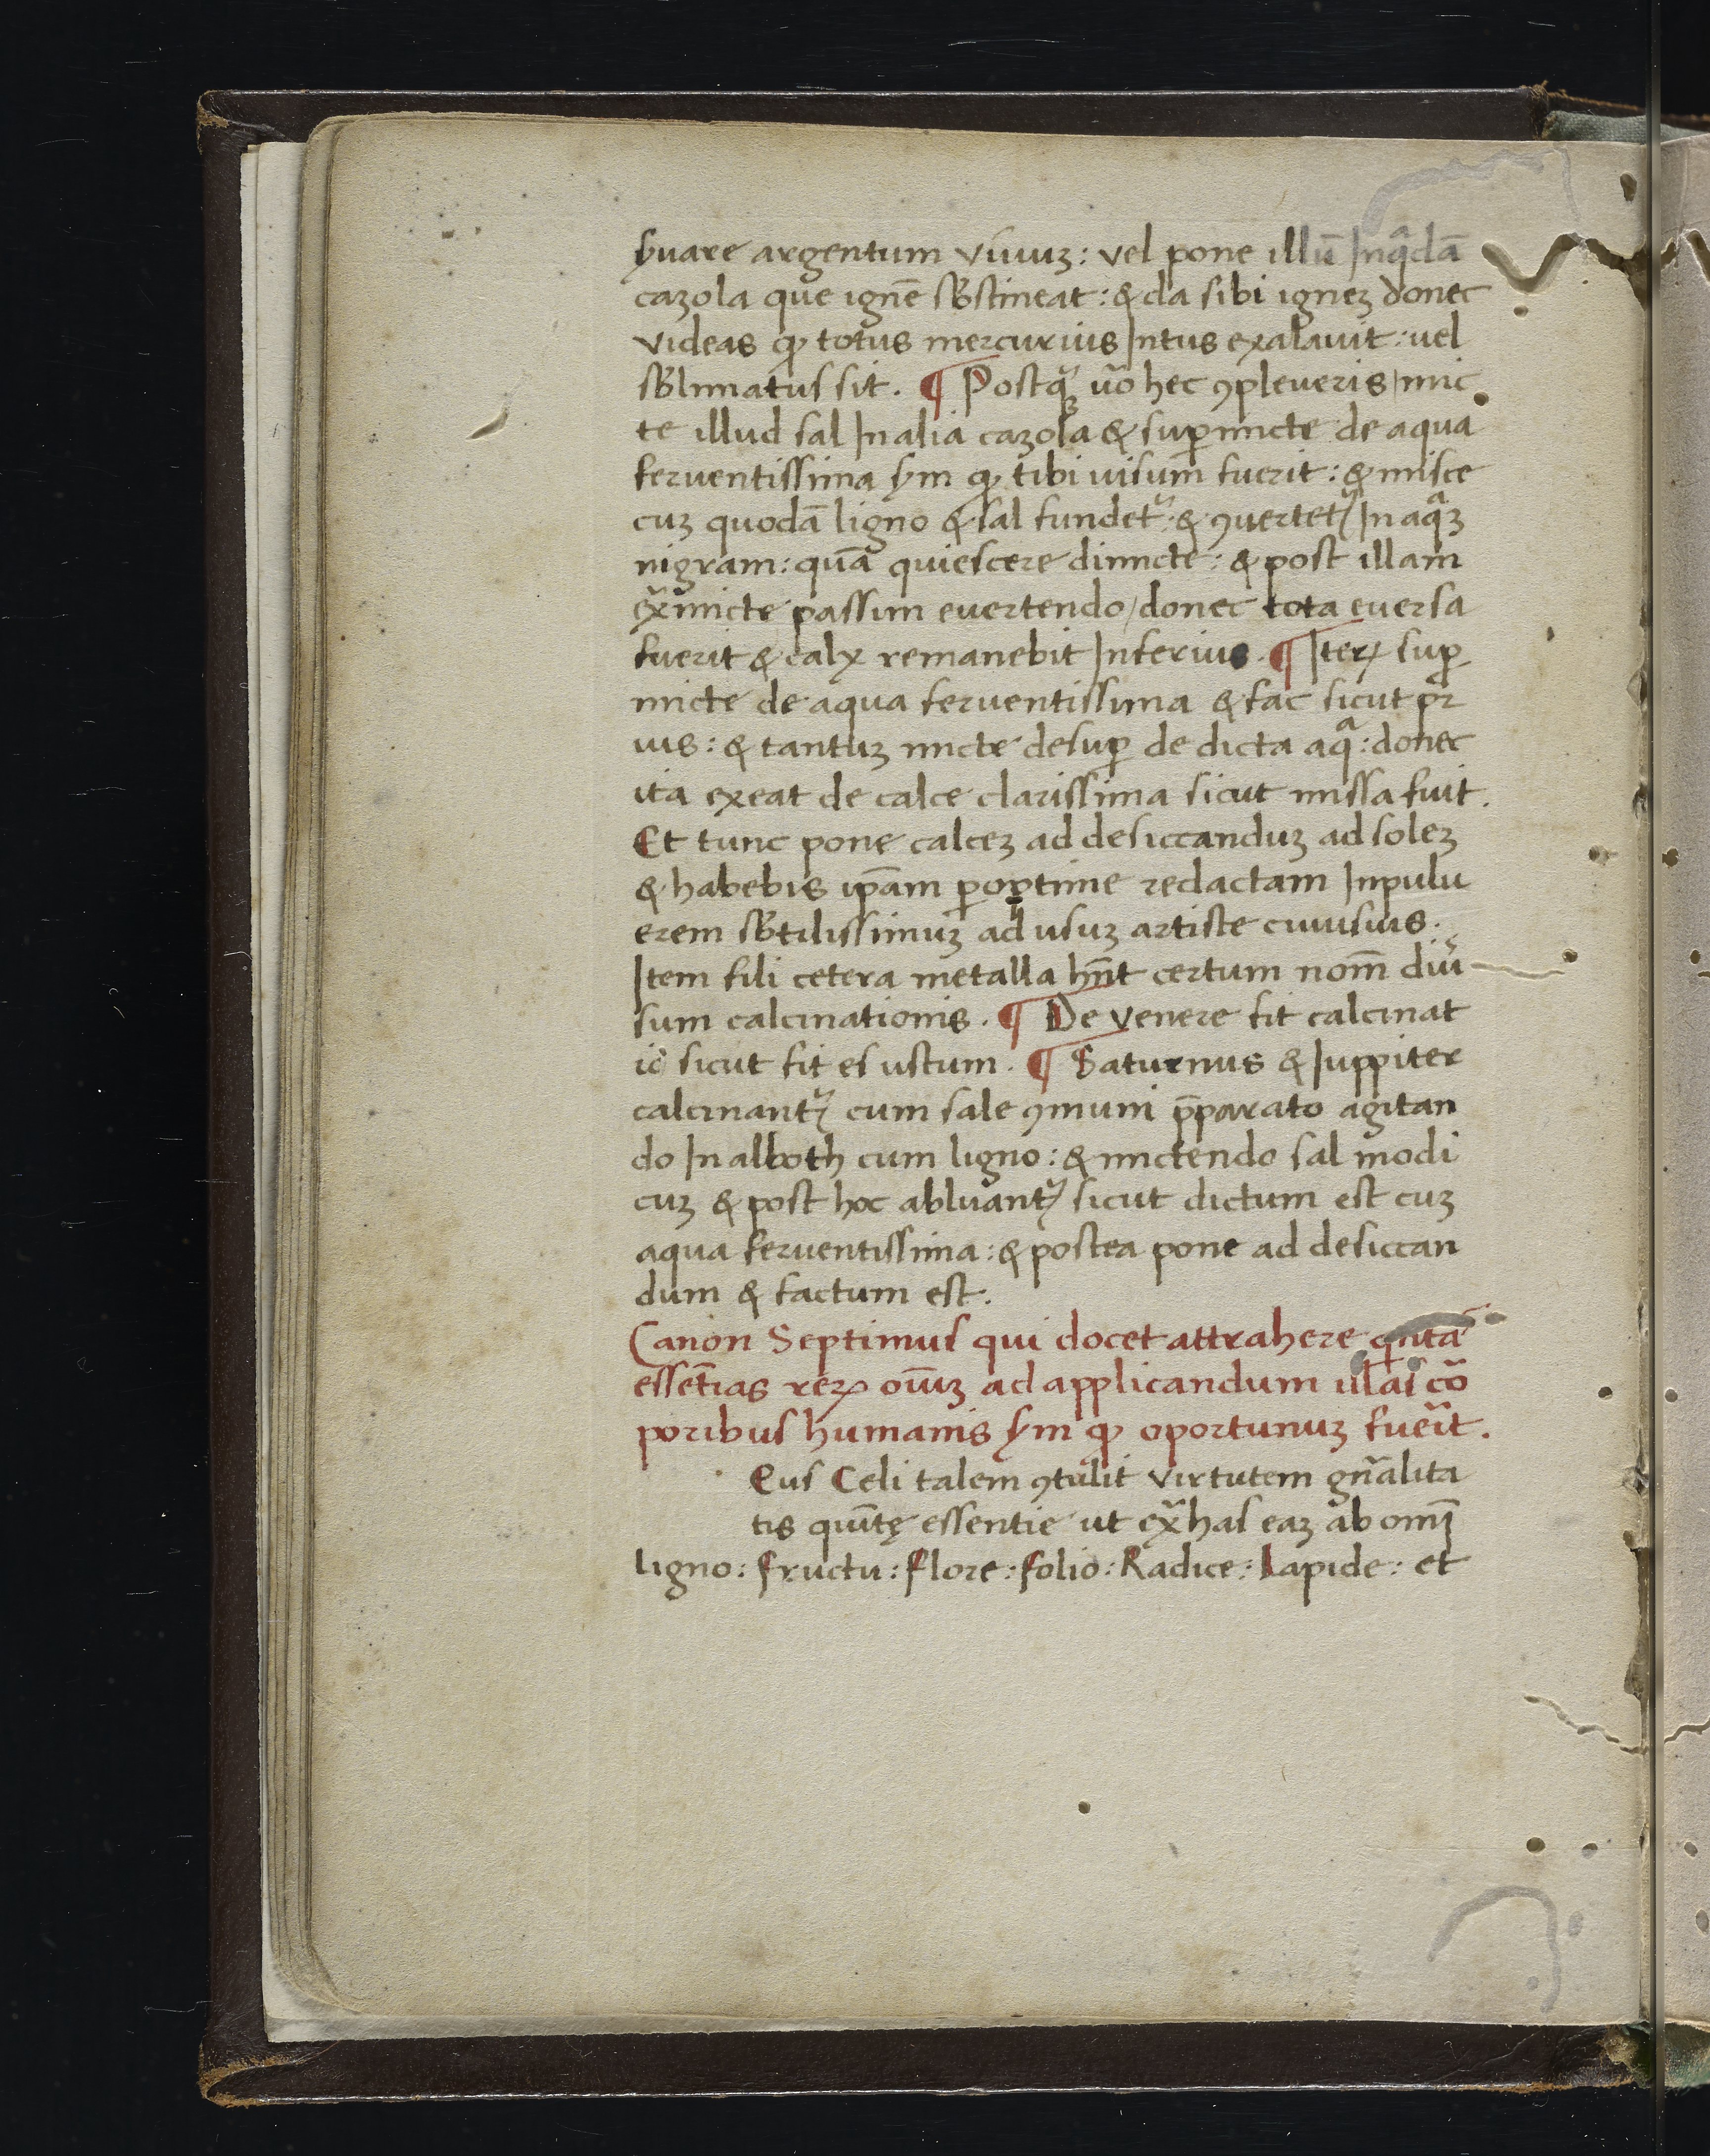 ẜuare argentum viuuꝫ: vel pone illū Inqᷓdā
cazola que ignē sƀstineat: & da sibi igneꝫ donec
videas ꝙ totus mercurius Intus exalauit: vel
sƀlimatus sit. ¶ Postqᷓꝫ u͞o hec ꝯpleueris / mic
te illud sal In alia cazola & suꝑmicte de aqua
feruentissima ẜm ꝙ tibi uisum fuerit: & misce
cuꝫ quodā ligno & sal fundet᷑: & ꝯuertet᷑ In aqᷓꝫ
nigram: quā quiescere dimicte: & post illam
ex͞micte passim euertendo / donec tota euersa
fuerit & calx remanebit Inferius. ¶ Iteꝝ suꝑ
micte de aqua feruentissima & fac sicut pr̄
ius: & tantuꝫ micte desuꝑ de dicta aqᷓ: donec
ita exeat de calce clarissima sicut missa fuit.
Et tunc pone calceꝫ ad desiccanduꝫ ad soleꝫ
& habebis ip̄am ꝑoptime redactam Inpulu
erem sƀtilissimuꝫ ad usuꝫ artiste cuiusuis.
Item fili cetera metalla hn̄t certum nom̄ diu᷑
sum calcinationis. ¶ De venere fit calcinat
io sicut fit es ustum. ¶ Saturnus & Iuppiter
calcinant᷑ cum sale ꝯmuni p̄parato agitan
do In alboth cum ligno: & mictendo sal modi
cuꝫ & post hoc abluant᷑ sicut dictum est cuꝫ
aqua feruentissima: & postea pone ad desiccan
dum & factum est.
Canon Septimus qui docet attrahere qnᷓtā
essēt̄ias reꝝ oīuꝫ ad applicandum illas co᷑
poribus humanis ẜm ꝙ oportunuꝫ fue᷑it.
Eus Celi talem ꝯtulit virtutem gn̄alita
tis quītę essentie ut ex͞has eaꝫ ab omī
ligno: fructu: flore: folio: Radice: Lapide: et